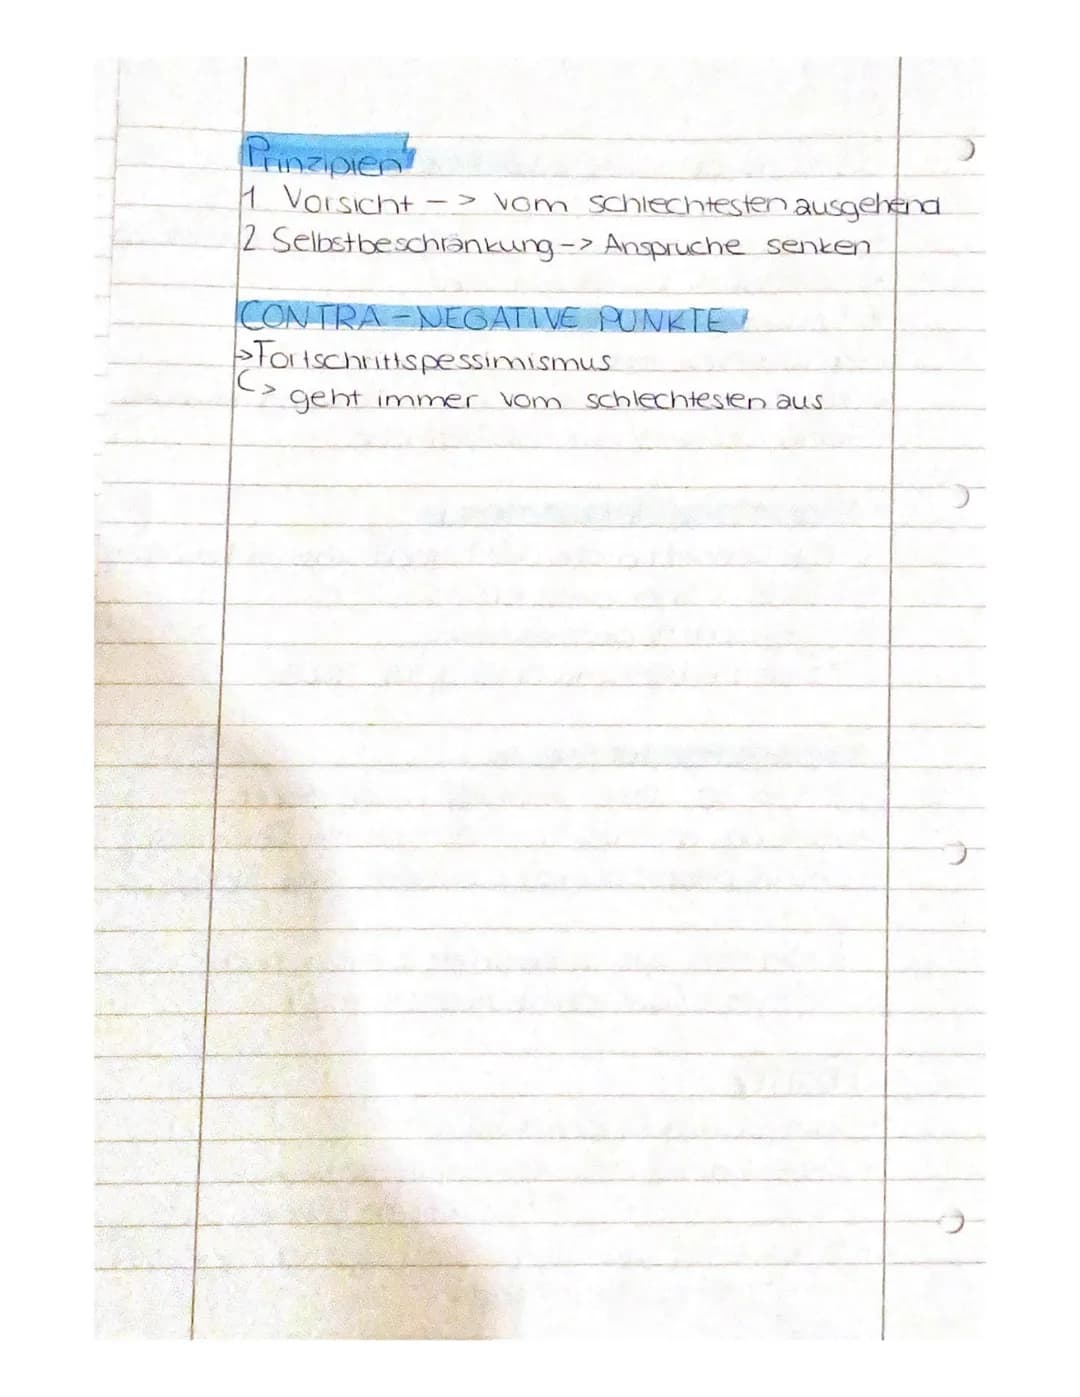 Prinzipien
1 Vorsicht -> vom schlechtesten ausgehend
2 Selbstbeschränkung -> Anspruche senken
CONTRA - NEGATIVE PUNKTE
-> Fortschrittspessimismus
↳ geht immer vom schlechtesten aus